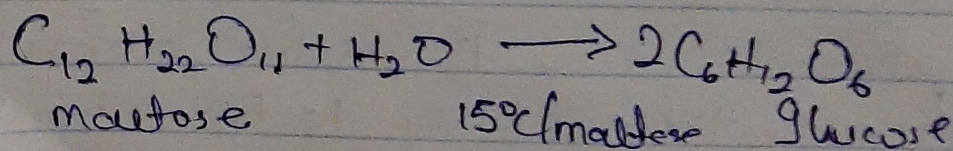 C₁₂ H₂₂ O₁₁ + H₂O ⟶ 2C₆H₁₂O₆
maltose 15°C/maltese glucose